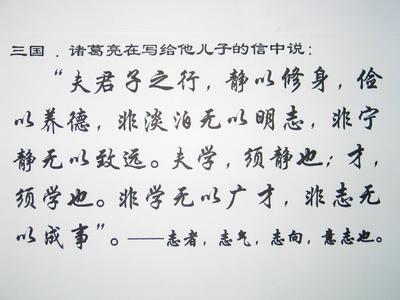 三国．诸葛亮在写给他儿子的信中说：
“夫君子之行，静以修身，俭
以养德，非淡泊无以明志，非宁
静无以致远。夫学，须静也；才，
须学也。非学无以广才，非志无
以成事”。——志者，志气，志向，意志也。